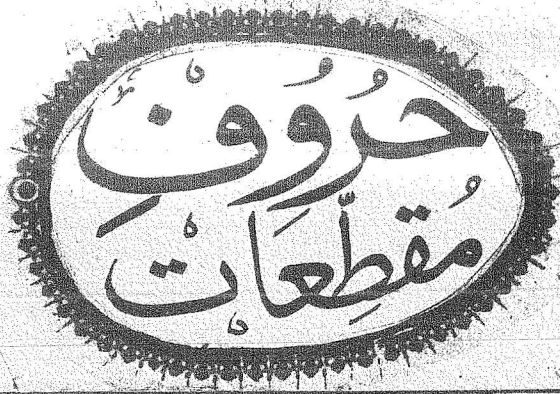 حُرُوُفِ
مُقطِّعَات